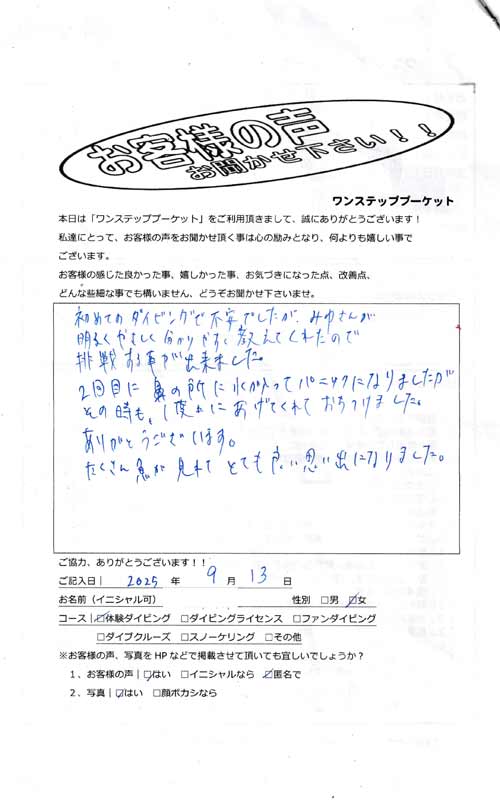 お客様の声
お聞かせ下さい！！
ワンステッププーケット
本日は「ワンステッププーケット」をご利用頂きまして、誠にありがとうございます！
私達にとって、お客様の声をお聞かせ頂く事は心の励みとなり、何よりも嬉しい事で
ございます。
お客様の感じた良かった事、嬉しかった事、お気づきになった点、改善点、
どんな些細な事でも構いません、どうぞお聞かせ下さいませ。
初めてのダイビングで不安でしたが、みゆさんが
明るくやさしく分かりやすく教えてくれたので
挑戦する事が出来ました。
2回目に鼻の所に水が入ってパニックになりましたが
その時も、1度上にあげてくれておちつけました。
ありがとうございます。
たくさん魚が見れて とても良い思い出になりました。
ご協力、ありがとうございます！！
ご記入日｜ 2025 年 9 月 13 日
お名前（イニシャル可） 性別 □男 ☑女
コース｜☑体験ダイビング □ダイビングライセンス □ファンダイビング
□ダイブクルーズ □スノーケリング □その他
※お客様の声、写真を HP などで掲載させて頂いても宜しいでしょうか？
1、お客様の声｜☑はい □イニシャルなら ☑匿名で
2、写真｜☑はい □顔ボカシなら